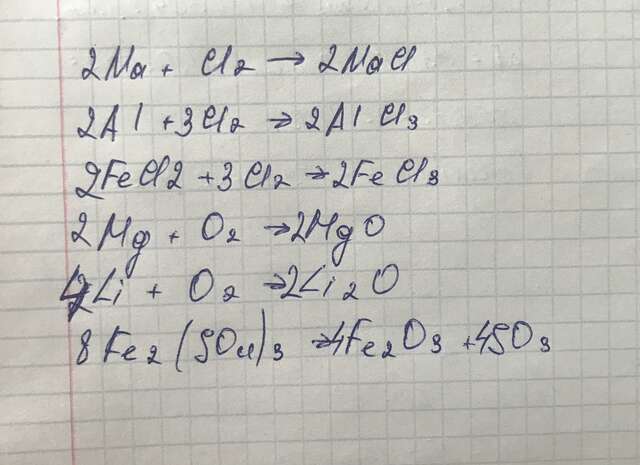 2Na + Cl2 → 2NaCl
2Al + 3Cl2 → 2AlCl3
2FeCl2 + 3Cl2 → 2FeCl3
2Mg + O2 → 2MgO
4Li + O2 → 2Li2O
8Fe2(SO4)3 → 4Fe2O3 + 4SO3